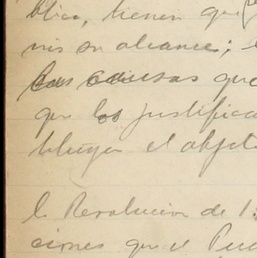 blica, tienen que
su alcance;
las causas que
que los justifica
el objeto
la Revolucion de 1
ciones que el Pue